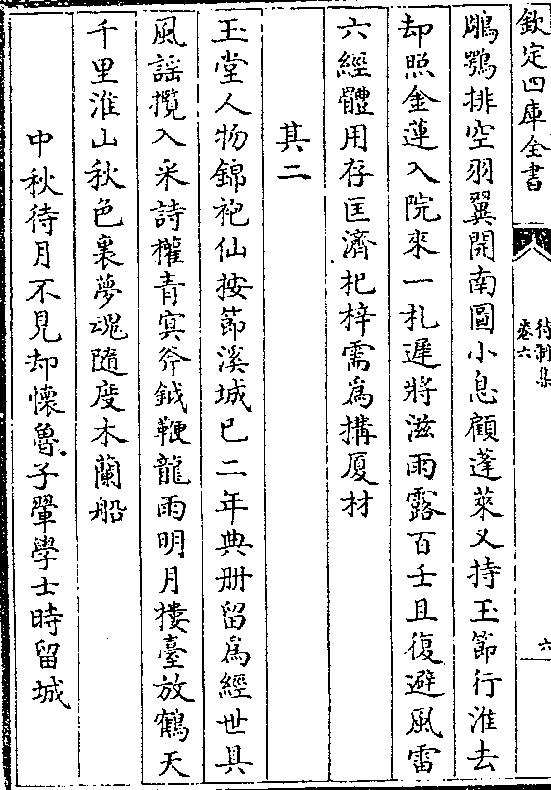 欽定四庫全書
待制集
卷六
六
鵰鶚排空羽翼開南圖小息顧蓬萊又持玉節行淮去
却照金蓮入院來一札遲將滋雨露百壬且復避風雷
六經體用存匡濟杞梓需為搆厦材
其二
玉堂人物錦袍仙按節溪城已二年典册留為經世具
風謡攬入采詩櫂青寅斧鉞鞭龍雨明月摟臺放鶴天
千里淮山秋色裏夢魂隨度木蘭船
中秋待月不見却懷魯子翬學士時留城